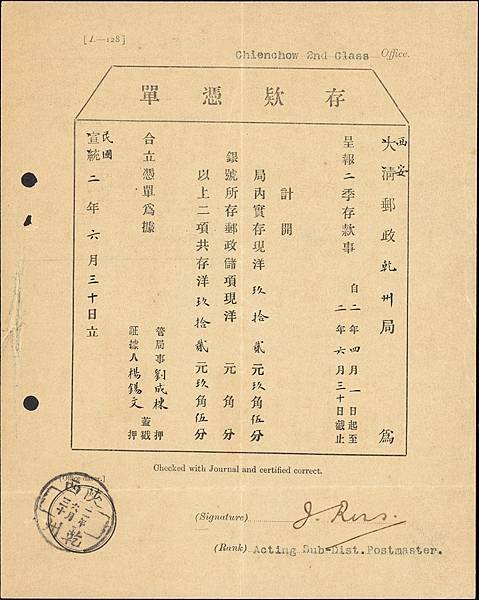 [L—128]
Chienchow 2nd Class Office.
存欵憑單
西安
大清郵政乾州局 為
呈報二季存款事 自二年四月一日起至
二年六月三十日截止
計開
局內實存現洋 玖拾貳元玖角伍分
銀號所存郵政儲項現洋 元 角 分
以上二項共存洋 玖拾貳元玖角伍分
合立憑單為據
管局事 劉成棟 押
蓋戳
証據人 楊錫文 押
民國
宣統 二年六月三十日立
Checked with Journal and certified correct.
[Office stamp.]
陝西
二年
六月
三十
乾州
(Signature)
(Rank) Acting Sub-Dist. Postmaster.